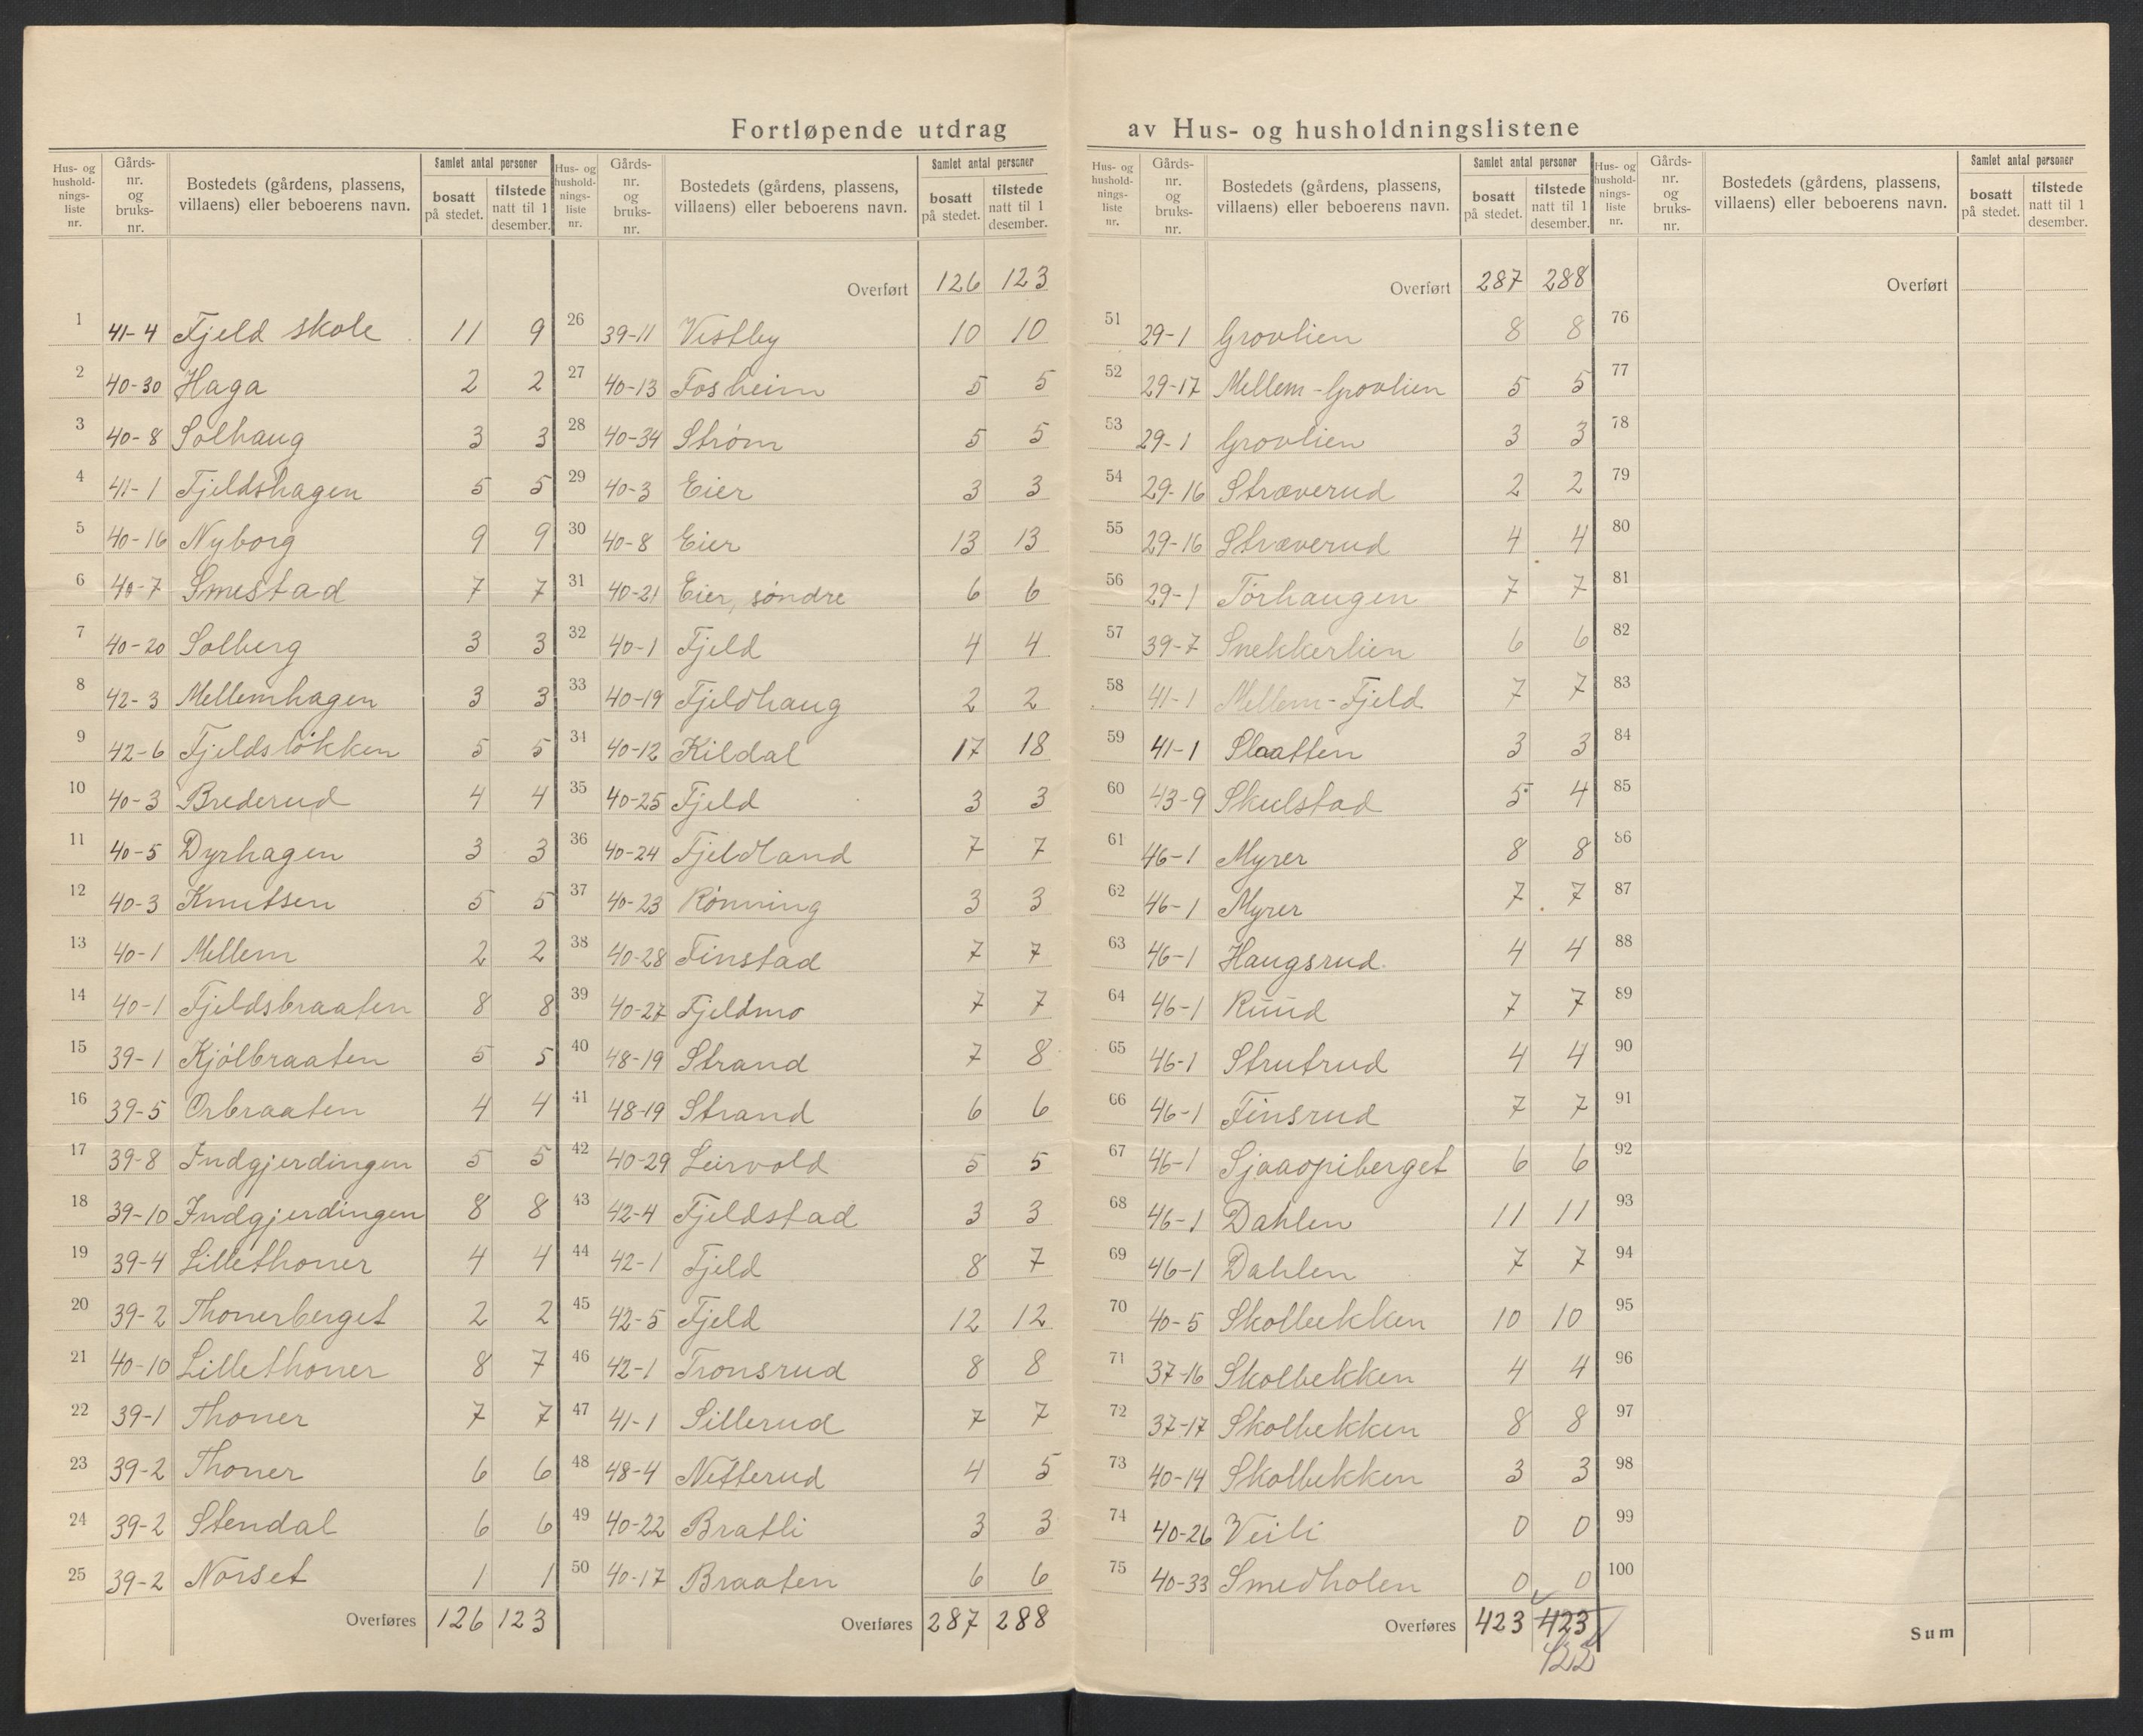 Fortløpende utdrag av Hus- og husholdningslistene
Hus- og husholdnings-liste nr. Gårds-nr. og bruks-nr. Bostedets (gårdens, plassens, villaens) eller beboerens navn. Samlet antal personer bosatt på stedet. tilstede natt til 1 desember.
1 41-4 Fjeld skole 11 9
2 40-30 Haga 2 2
3 40-8 Solhaug 3 3
4 41-1 Fjeldshagen 5 5
5 40-16 Nyborg 9 9
6 40-7 Smestad 7 7
7 40-20 Solberg 3 3
8 42-3 Mellemhagen 3 3
9 42-6 Fjeldsløkken 5 5
10 40-3 Brederud 4 4
11 40-5 Dyrhagen 3 3
12 40-3 Knutsen 5 5
13 40-1 Mellem 2 2
14 40-1 Fjeldsbraaten 8 8
15 39-1 Kjølbraaten 5 5
16 39-5 Orbraaten 4 4
17 39-8 Indgjerdingen 5 5
18 39-10 Indgjerdingen 8 8
19 39-4 Lillethoner 4 4
20 39-2 Thonerberget 2 2
21 40-10 Lillethoner 8 7
22 39-1 Thoner 7 7
23 39-2 Thoner 6 6
24 39-2 Stendal 6 6
25 39-2 Norset 1 1
Overføres 126 123
Hus- og husholdnings-liste nr. Gårds-nr. og bruks-nr. Bostedets (gårdens, plassens, villaens) eller beboerens navn. Samlet antal personer bosatt på stedet. tilstede natt til 1 desember.
Overført 126 123
26 39-11 Vestby 10 10
27 40-13 Fosheim 5 5
28 40-34 Strøm 5 5
29 40-3 Eier 3 3
30 40-8 Eier 13 13
31 40-21 Eier, søndre 6 6
32 40-1 Fjeld 4 4
33 40-19 Fjeldhaug 2 2
34 40-12 Kildal 17 18
35 40-25 Fjeld 3 3
36 40-24 Fjeldland 7 7
37 40-23 Rønning 3 3
38 40-28 Finstad 7 7
39 40-27 Fjeldmo 7 7
40 48-19 Strand 7 8
41 48-19 Strand 6 6
42 40-29 Leirvold 5 5
43 42-4 Fjeldstad 3 3
44 42-1 Fjeld 8 7
45 42-5 Fjeld 12 12
46 42-1 Tronsrud 8 8
47 41-1 Sillerud 7 7
48 48-4 Netterud 4 5
49 40-22 Bratli 3 3
50 40-17 Braaten 6 6
Overføres 287 288
Hus- og hushold-nings-liste nr. Gårds-nr. og bruks-nr. Bostedets (gårdens, plassens, villaens) eller beboerens navn. Samlet antal personer bosatt på stedet. tilstede natt til 1 desember.
Overført 287 288
51 29-1 Grovlien 8 8
52 29-17 Mellem-Grovlien 5 5
53 29-1 Grovlien 3 3
54 29-16 Stræverud 2 2
55 29-16 Stræverud 4 4
56 29-1 Tørhaugen 7 7
57 39-7 Snekkerlien 6 6
58 41-1 Mellem-Fjeld 7 7
59 41-1 Slaatten 3 3
60 43-9 Skulstad 5 4
61 46-1 Myrer 8 8
62 46-1 Myrer 7 7
63 46-1 Haugsrud 4 4
64 46-1 Ruud 7 7
65 46-1 Strutrud 4 4
66 46-1 Finsrud 7 7
67 46-1 Sjaaopiberget 6 6
68 46-1 Dahlen 11 11
69 46-1 Dahlen 7 7
70 40-5 Skolbekken 10 10
71 37-16 Skolbekken 4 4
72 37-17 Skolbekken 8 8
73 40-14 Skolbekken 3 3
74 40-26 Veili 0 0
75 40-33 Smedholen 0 0
Overføres 423 423
422
Hus- og hushold-nings-liste nr. Gårds-nr. og bruks-nr. Bostedets (gårdens, plassens, villaens) eller beboerens navn. Samlet antal personer bosatt på stedet. tilstede natt til 1 desember.
Overført
76
77
78
79
80
81
82
83
84
85
86
87
88
89
90
91
92
93
94
95
96
97
98
99
100
Sum